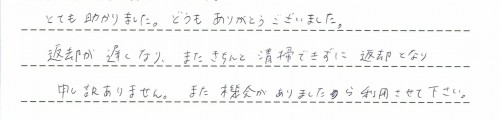 とても助かりました。どうもありがとうございました。
返却が遅くなり、またきちんと清掃できずに返却となり
申し訳ありません。また機会がありましたら利用させて下さい。